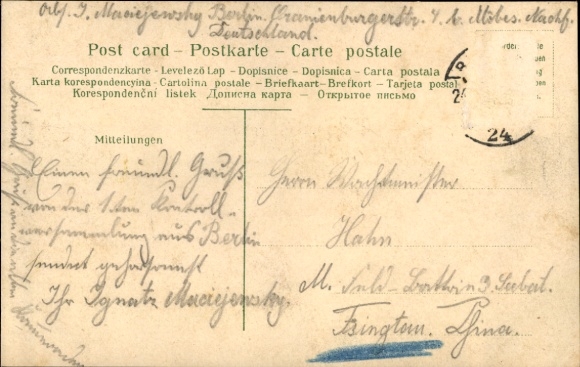 Abs. I. Maciejewsky Berlin. Oranienburgerstr. 7. b. Möbes. Nachf.
Deutschland.
Post card – Postkarte – Carte postale
Correspondenzkarte - Levelező Lap – Dopisnice – Dopisnica – Carta postala
Karta korespondencyina – Cartolina postale – Briefkaart – Brefkort – Tarjeta postal
Korespondenční listek – Дописна карта – Открытое письмо
24
24
Mitteilungen
Einen freundl. Gruß
von der 1ten Kontroll-
versammlung aus Berlin
sendet gehorsamst
Ihr Ignatz Maciejewsky.
Herrn Wachtmeister
Hahn
M. Feld-Battrie 3.
Tsingtau. China.